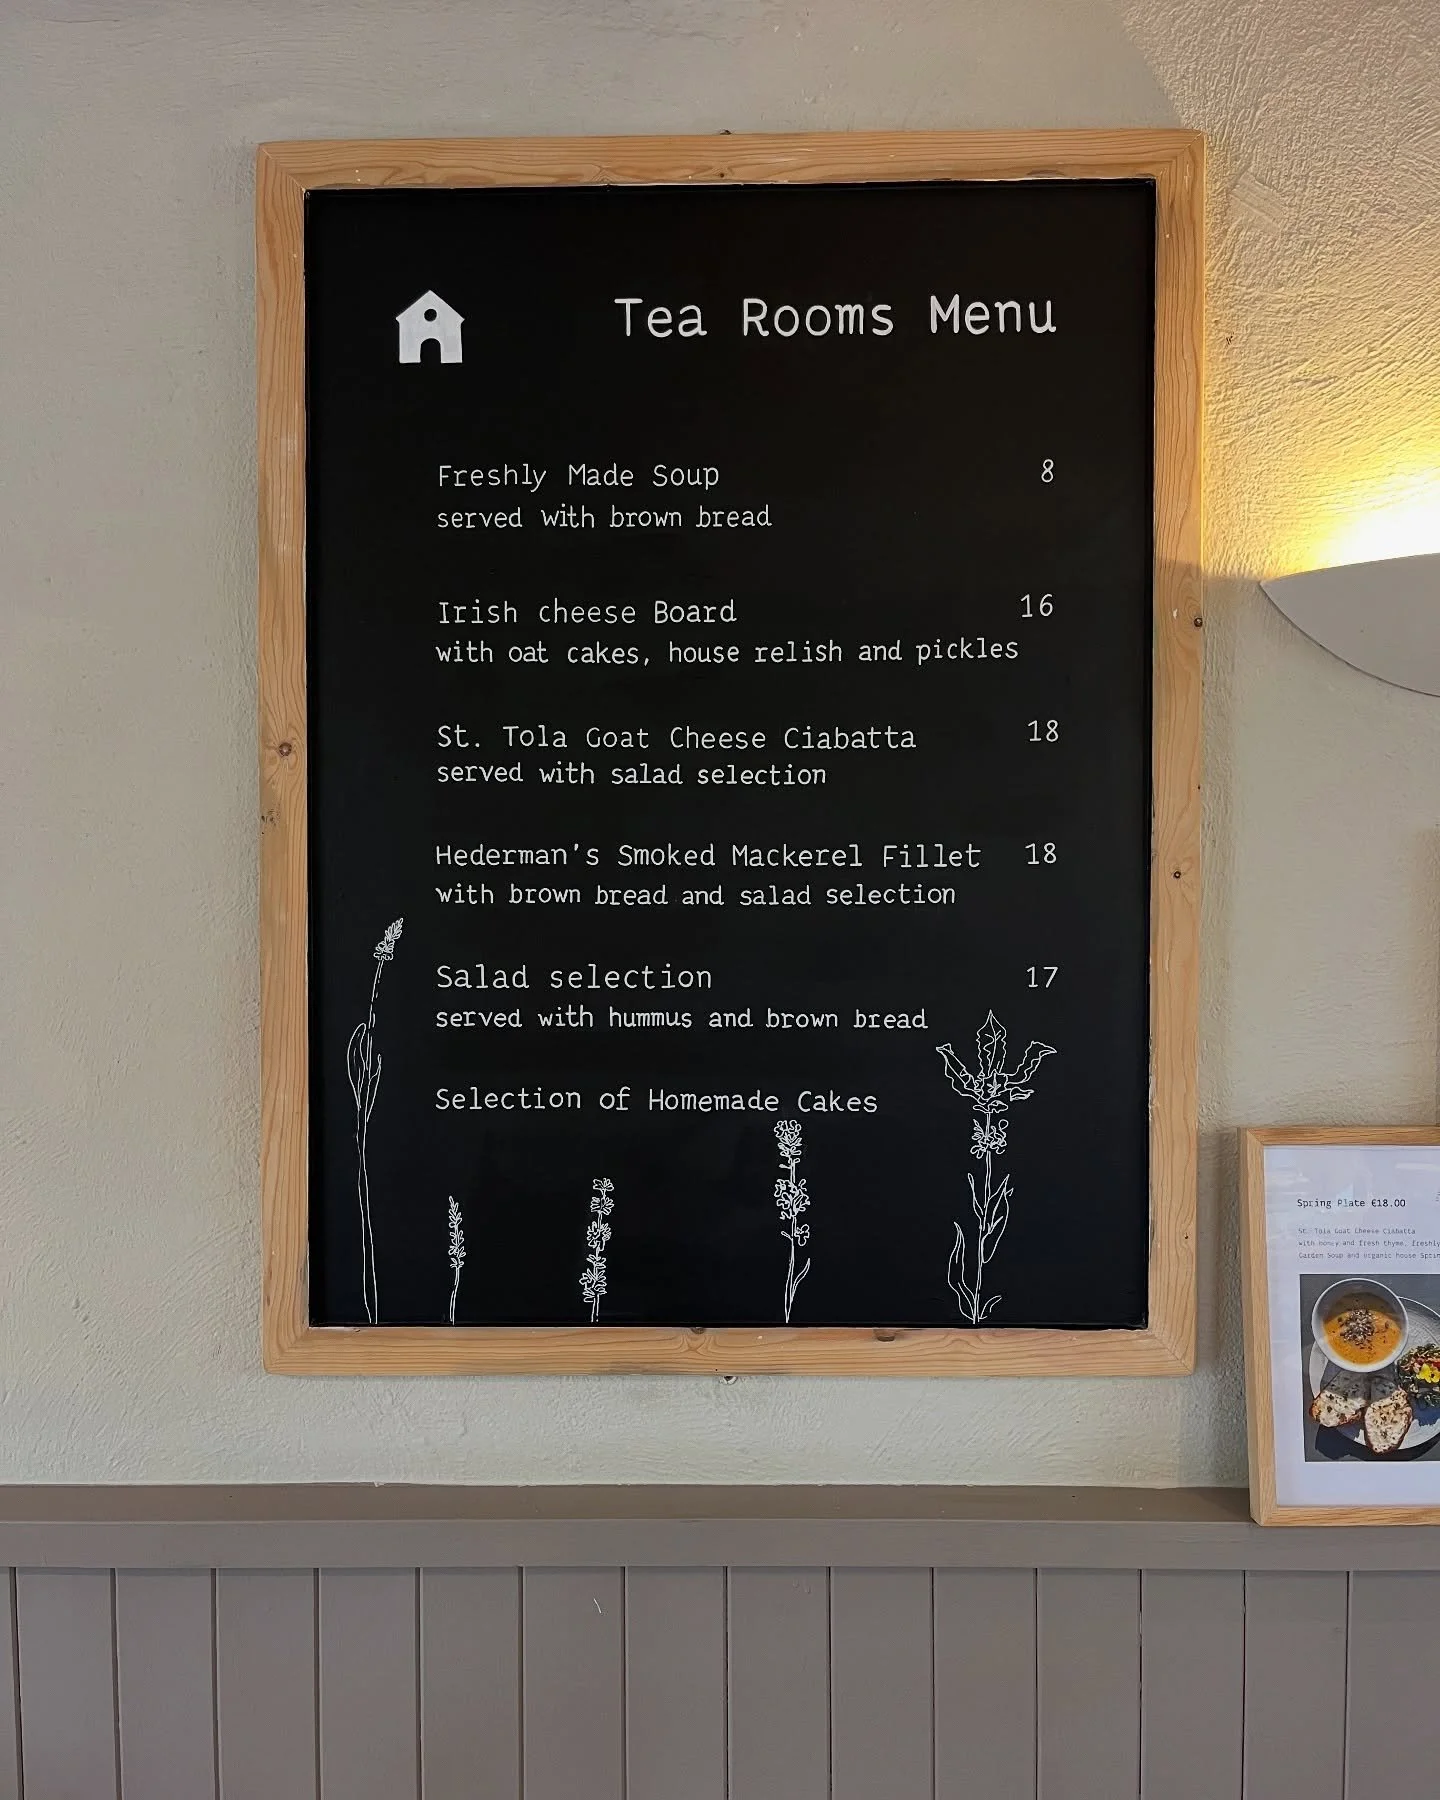 Tea Rooms Menu
Freshly Made Soup 8
served with brown bread
Irish cheese Board 16
with oat cakes, house relish and pickles
St. Tola Goat Cheese Ciabatta 18
served with salad selection
Hederman's Smoked Mackerel Fillet 18
with brown bread and salad selection
Salad selection 17
served with hummus and brown bread
Selection of Homemade Cakes
Spring Plate €18.00
St. Tola Goat Cheese Ciabatta
with honey and fresh thyme, freshly
Garden Soup and organic house